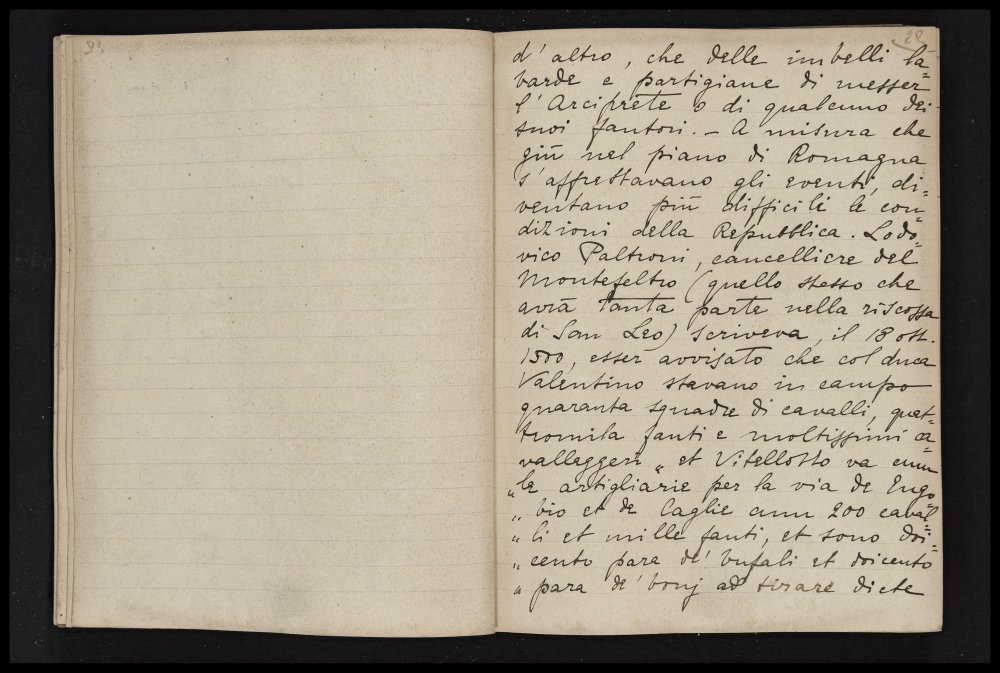 22
d' altro, che delle imbelli la=
barde e partigiane di messer
l' Arciprete o di qualcuno dei
suoi fautori. – A misura che
giù nel piano di Romagna
s' affrettavano gli eventi, di=
ventano più difficili le con=
dizioni della Repubblica. Lodo=
vico Paltroni, cancelliere del
Montefeltro (quello stesso che
avrà tanta parte nella riscossa
di San Leo) scriveva, il 18 ott.
1500, esser avvisato che col duca
Valentino stavano in campo
quaranta squadre di cavalli, quat=
tromila fanti e moltissimi ca=
valleggeri „ et Vitellotto va cum
„ le artigliarie per la via de Engo=
„ bio et de Caglie cum 200 caval=
„ li et mille fanti, et sono doi=
„ cento para de' bufali et doicento
„ para de' bovj ad tirare dicte